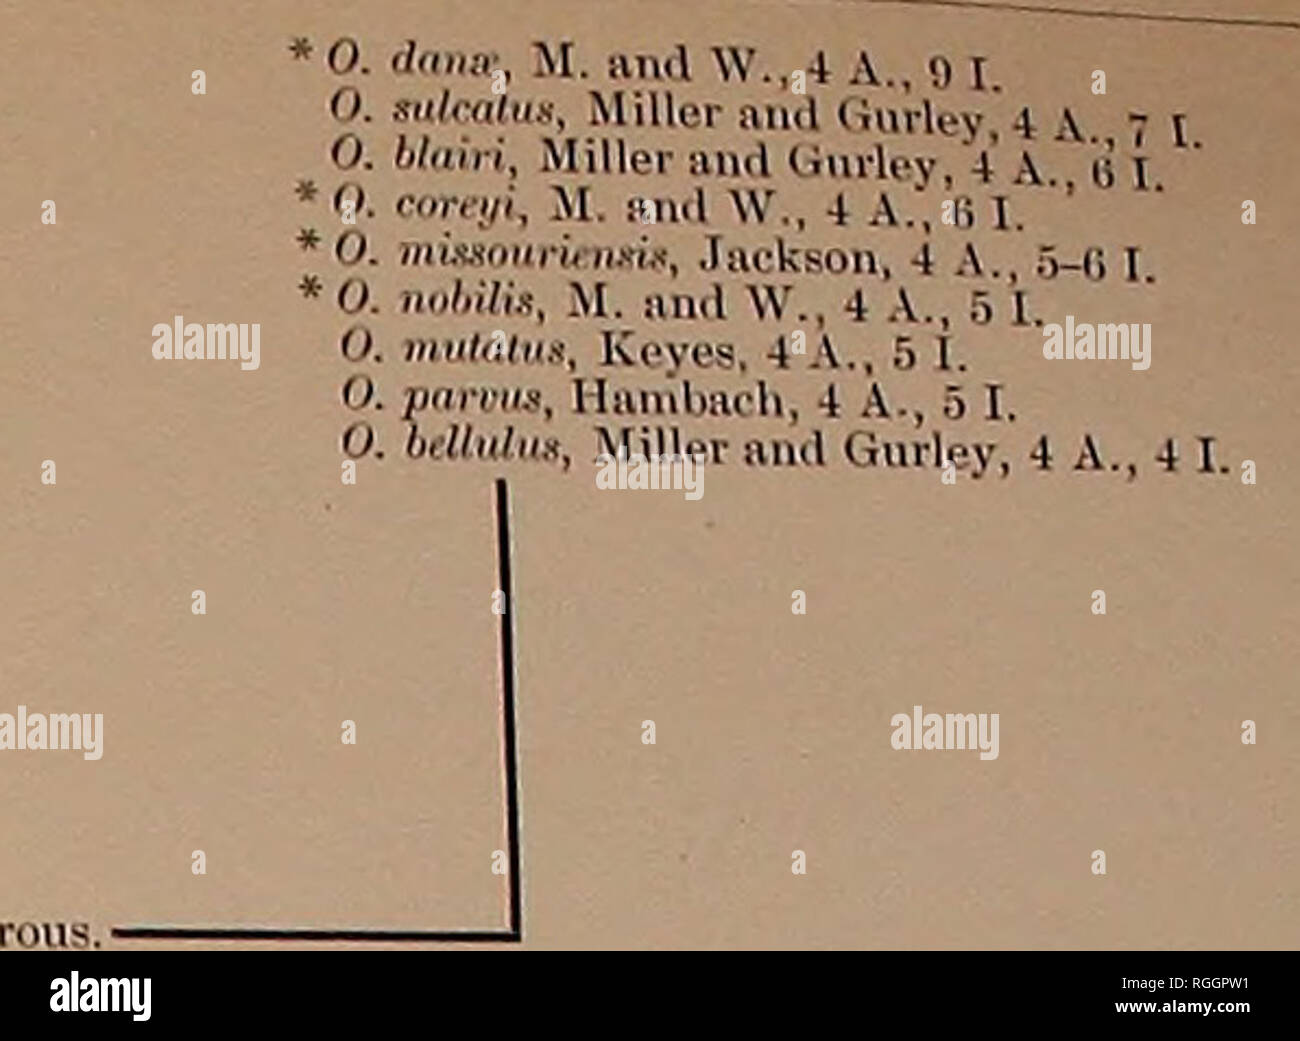 * O. danæ, M. and W., 4 A., 9 I.
O. sulcatus, Miller and Gurley, 4 A., 7 I.
O. blairi, Miller and Gurley, 4 A., 6 I.
* O. coreyi, M. and W., 4 A., 6 I.
* O. missouriensis, Jackson, 4 A., 5–6 I.
* O. nobilis, M. and W., 4 A., 5 I.
O. mutatus, Keyes, 4 A., 5 I.
O. parvus, Hambach, 4 A., 5 I.
O. bellulus, Miller and Gurley, 4 A., 4 I.
rous.
alamy
alamy
alamy
alamy
alamy
alamy stock photo
RGGPW1
www.alamy.com